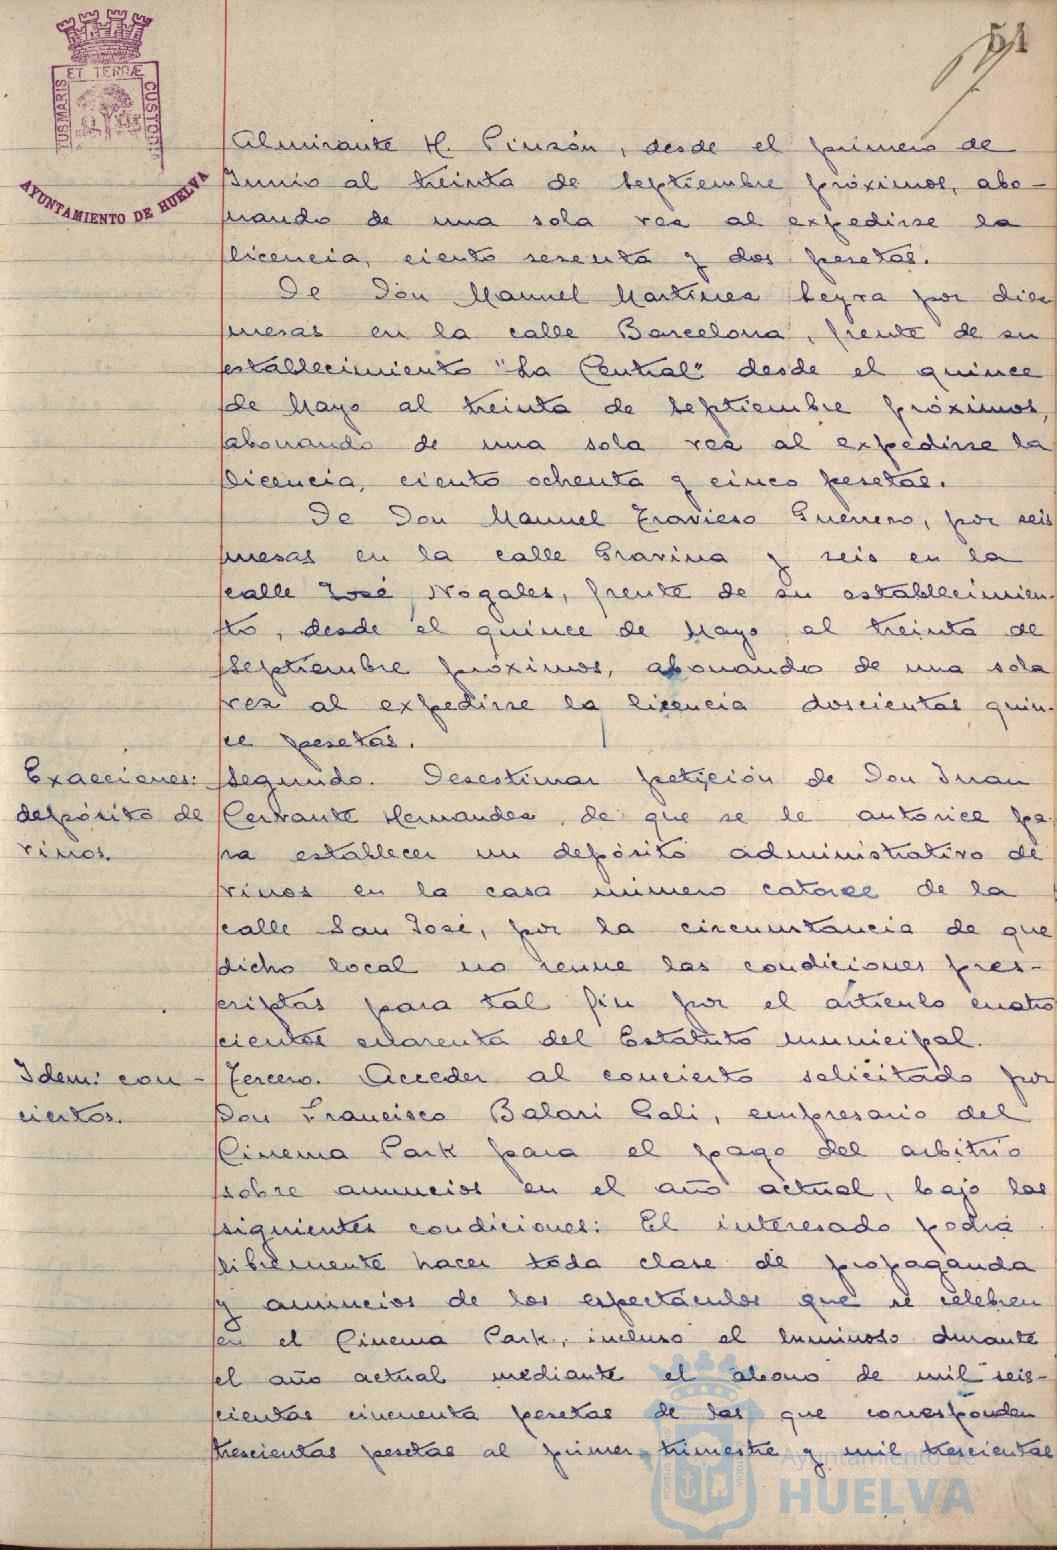 51
ET TERRÆ
CUSTODIA
AYUNTAMIENTO DE HUELVA
Almirante H. Pinzón, desde el primero de
Junio al treinta de Septiembre próximos, abo-
nando de una sola vez al expedirse la
licencia, ciento sesenta y dos pesetas.
De Don Manuel Martinez Leyra por diez
mesas en la calle Barcelona, frente de su
establecimiento "La Central" desde el quince
de Mayo al treinta de Septiembre próximos,
abonando de una sola vez al expedirse la
licencia, ciento ochenta y cinco pesetas.
De Don Manuel Travieso Guerrero, por seis
mesas en la calle Gravina y seis en la
calle José Nogales, frente de su establecimien-
to, desde el quince de Mayo al treinta de
Septiembre próximos, abonando de una sola
vez al expedirse la licencia doscientas quin-
ce pesetas.
Exacciones:
depósito de
vinos.
Segundo. Desestimar petición de Don Juan
Cervante Hernandez, de que se le autorice pa-
ra establecer un depósito administrativo de
vinos en la casa número catorce de la
calle San José, por la circunstancia de que
dicho local no reune las condiciones pres-
criptas para tal fin por el artículo cuatro
cientos cuarenta del Estatuto municipal.
Idem: con-
ciertos.
Tercero. Acceder al concierto solicitado por
Don Francisco Balari Gali, empresario del
Cinema Park para el pago del arbitrio
sobre anuncios en el año actual, bajo las
siguientes condiciones: El interesado podrá
libremente hacer toda clase de propaganda
y anuncios de los espectáculos que se celebren
en el Cinema Park, incluso el luminoso durante
el año actual mediante el abono de mil seis-
cientas cincuenta pesetas de las que corresponden
trescientas pesetas al primer trimestre y mil trescientas
Ayuntamiento de
HUELVA